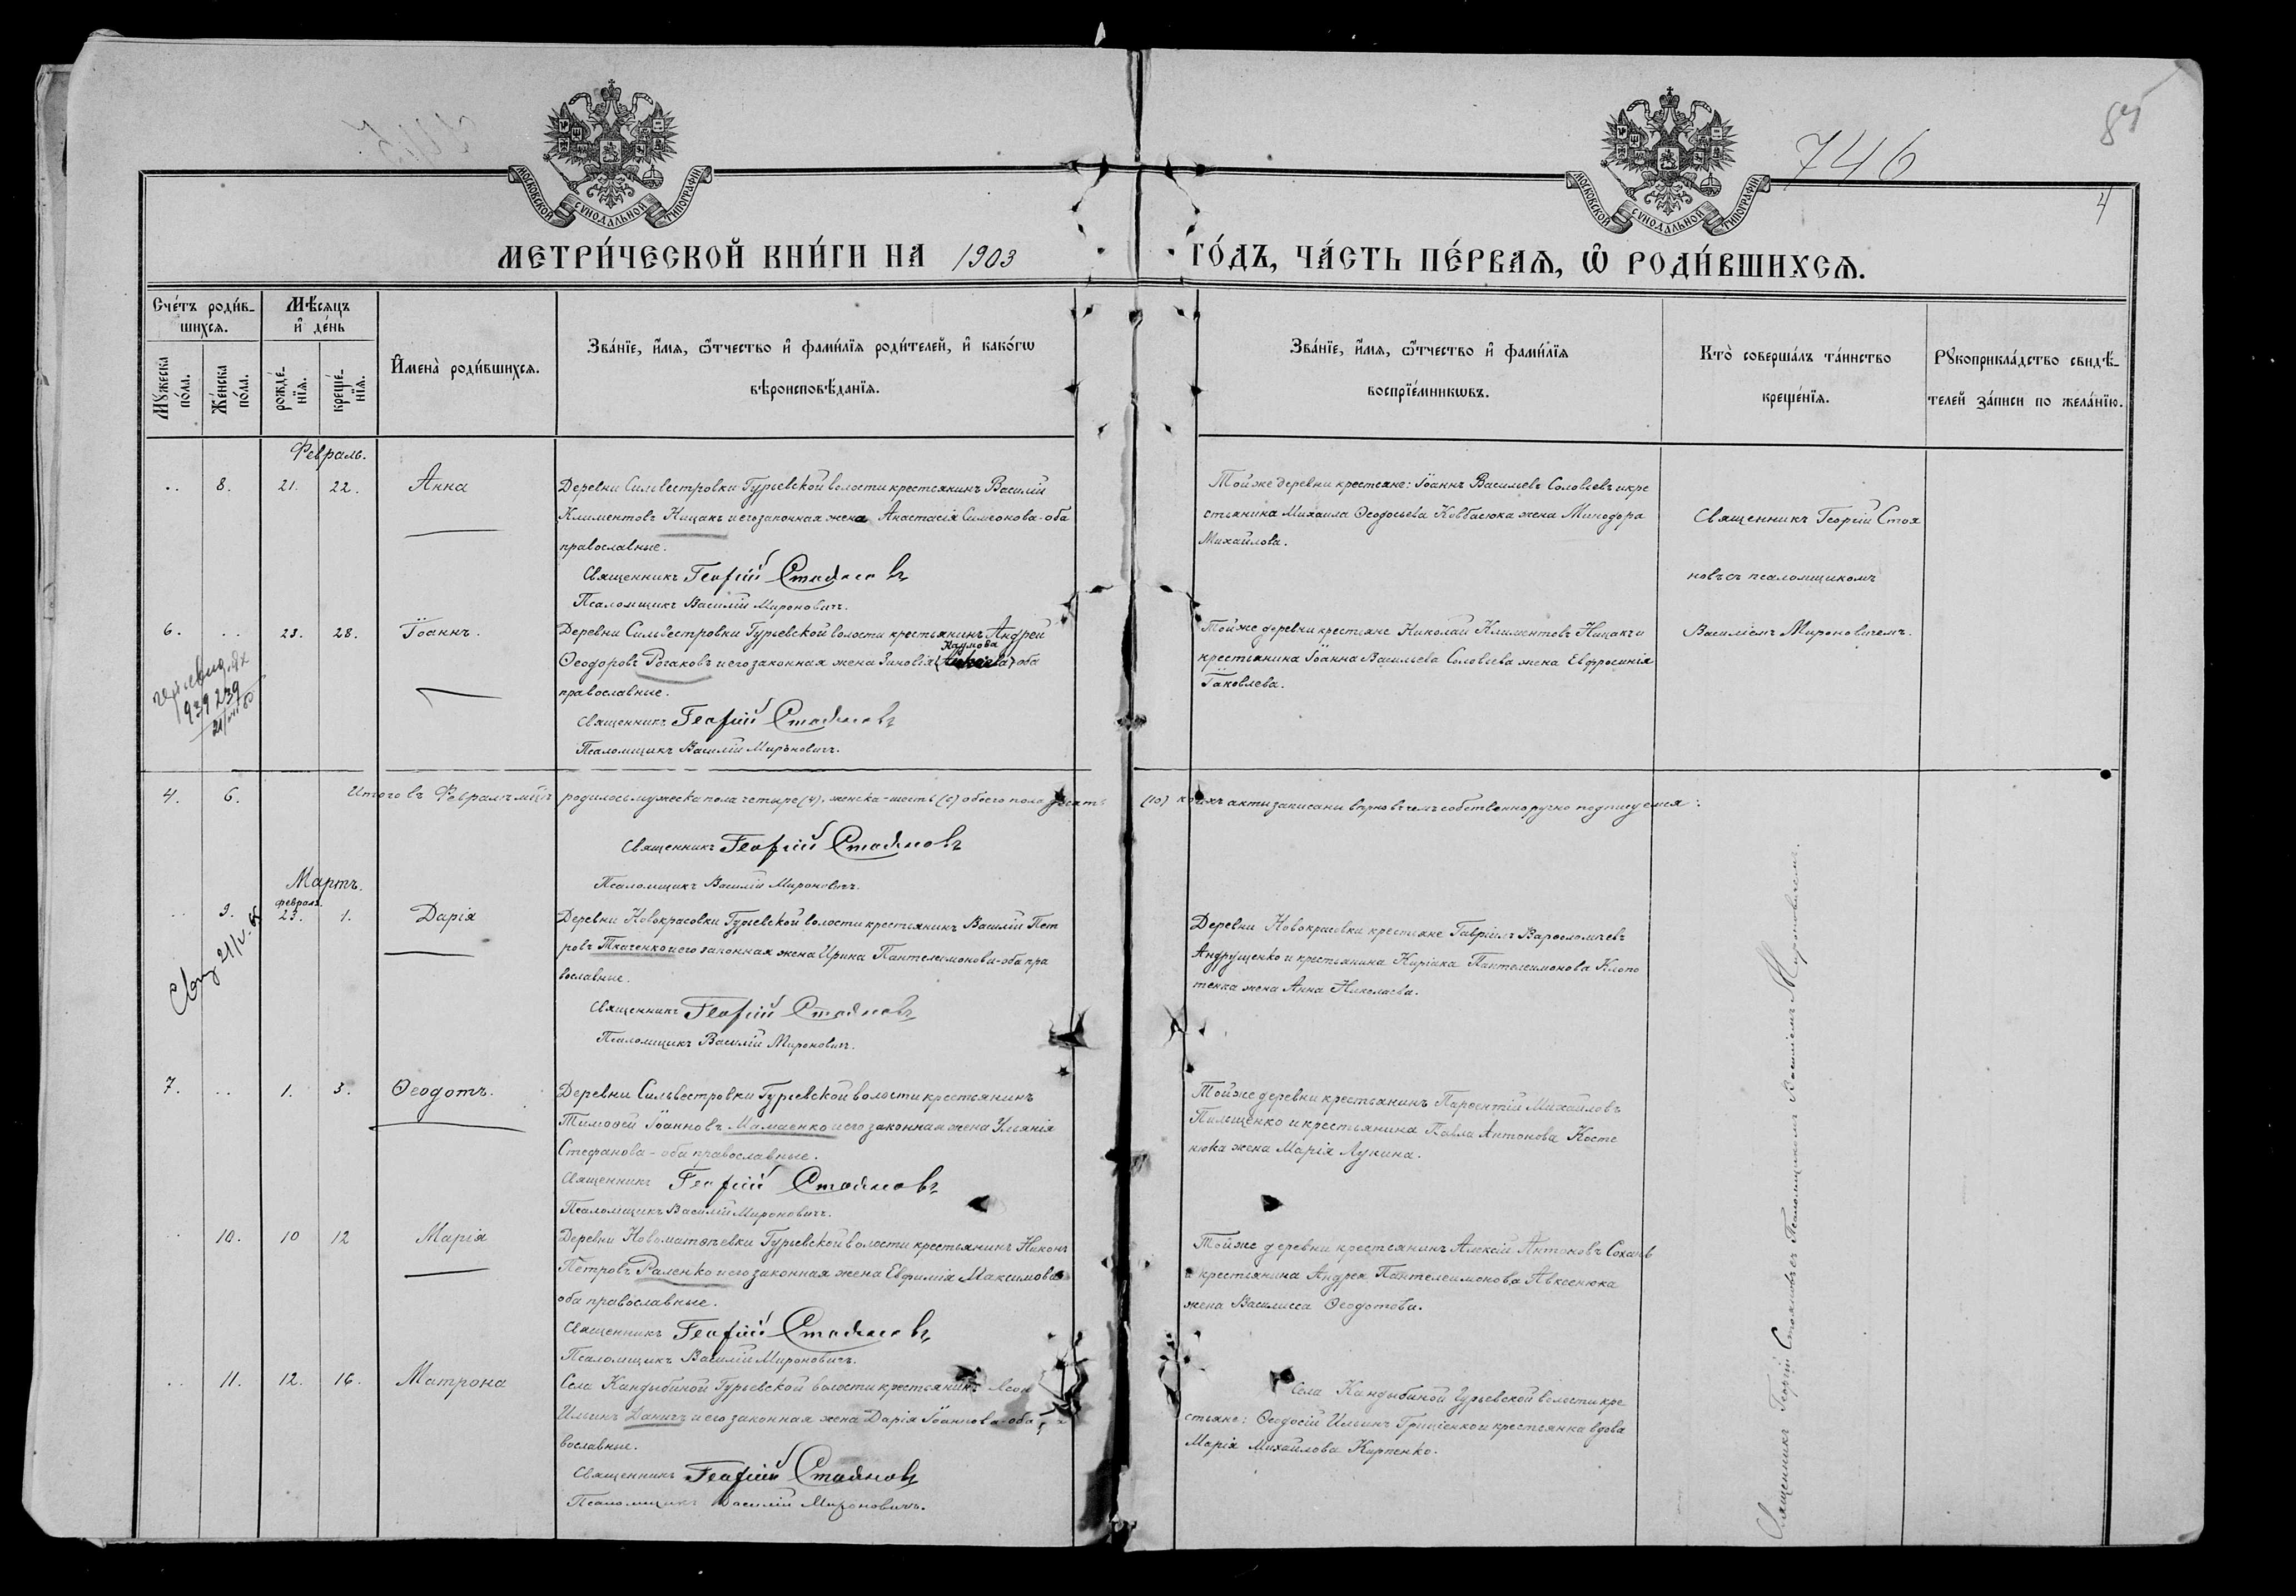 746
85
4
МОСКОВСКОЙ СѴНОДАЛЬНОЙ ТИПОГРАФІИ
МОСКОВСКОЙ СѴНОДАЛЬНОЙ ТИПОГРАФІИ
МЕТРИ́ЧЕСКОЙ КНИ́ГИ НА 1903 ГО́ДЪ, ЧА́СТЬ ПЕ́РВАЯ, Ѡ РОДИ́ВШИХСЯ.
Сче́тъ роди́в-
шихся.
Мѣ́сяцъ
и҆ де́нь
Мꙋ́жеска по́ла.
Же́нска по́ла.
рожде́-
нїя.
креще́-
нїя.
И҆мена̀ роди́вшихся.
Зва́нїе, и҆́мя, ѻ҆́тчество и҆ фами́лїя роди́телей, и҆ како́гѡ
вѣроисповѣ́данїя.
Зва́нїе, и҆́мя, ѻ҆́тчество и҆ фами́лїя
воспрїе́мникѡвъ.
Кто̀ соверша́лъ та́инство
креще́нїя.
Рꙋкоприкла́дство свидѣ́-
телей за́писи по жела́нїю.
Февраль.
.. 8. 21. 22. Анна
Деревни Сильвестровки Гурьевской волости крестьянинъ Василій
Климентовъ Кицакъ и его законная жена Анастасія Симеонова - оба
православные.
Священникъ Георгій Стояновъ
Псаломщикъ Василій Мироновичъ.
Той же деревни крестьяне: Іоаннъ Васильевъ Соловьевъ и кре
стьянина Михаила Ѳеодосьева Ковбасюка жена Минодора
Михайлова.
Священникъ Георгій Стоя
новъ съ псаломщикомъ
Василіемъ Мироновичемъ.
6. .. 23. 28. Іоаннъ.
Деревни Сильвестровки Гурьевской волости крестьянинъ Андрей
Наумова
Ѳеодоровъ Рогаковъ и его законная жена Зиновія оба
православные.
Священникъ Георгій Стояновъ
Псаломщикъ Василій Мироновичъ.
Той же деревни крестьяне Николай Климентовъ Кицакъ и
крестьянина Іоанна Васильева Соловьева жена Евфросинія
Іаковлева.
939239
4. 6. Итого въ Февралѣ м-цѣ родилось мужеска пола четыре (4), женска - шесть (6) обоего пола десять (10) коихъ акты записаны вѣрно въ чемъ собственноручно подписуемся:
Священникъ Георгій Стояновъ
Псаломщикъ Василій Мироновичъ.
Мартъ.
февраля.
.. 9. 23. 1. Дарія
Деревни Новокрасовки Гурьевской волости крестьянинъ Василій Пет
ровъ Ткаченко и его законная жена Ирина Пантелеимонова - оба пра
вославные.
Священникъ Георгій Стояновъ
Псаломщикъ Василій Мироновичъ.
Деревни Новокрасовки крестьяне Гавріилъ Варѳоломіевъ
Андрущенко и крестьянина Киріака Пантелеимонова Клопо
тенка жена Анна Николаева.
7. .. 1. 3. Ѳеодотъ.
Деревни Сильвестровки Гурьевской волости крестьянинъ
Тимоѳей Іоанновъ Мамаенко и его законная жена Ульянія
Стефанова - оба православные.
Священникъ Георгій Стояновъ
Псаломщикъ Василій Мироновичъ.
Той же деревни крестьянинъ Парѳентій Михайловъ
Пилещенко и крестьянина Павла Антонова Косте
нюка жена Марія Лукина.
.. 10. 10 12 Марія
Деревни Новоматвѣевки Гурьевской волости крестьянинъ Никонъ
Петровъ Раленко и его законная жена Евфимія Максимова
оба православные.
Священникъ Георгій Стояновъ
Псаломщикъ Василій Мироновичъ.
Той же деревни крестьянинъ Алексій Антоновъ Сохань
и крестьянина Андрея Пантелеимонова Авксенюка
жена Василисса Ѳеодотова.
.. 11. 12. 16. Матрона
Села Кандыбиной Гурьевской волости крестьянинъ Леон
Ильинъ Даничъ и его законная жена Дарія Іоаннова - оба
вославные.
Священникъ Георгій Стояновъ
Псаломщикъ Василій Мироновичъ.
Села Кандыбиной Гурьевской волости кре
стьяне: Ѳеодосій Ильинъ Гриценко и крестьянка вдова
Марія Михайлова Карпенко.
Священникъ Георгій Стояновъ съ Псаломщикомъ Василіемъ Мироновичемъ.